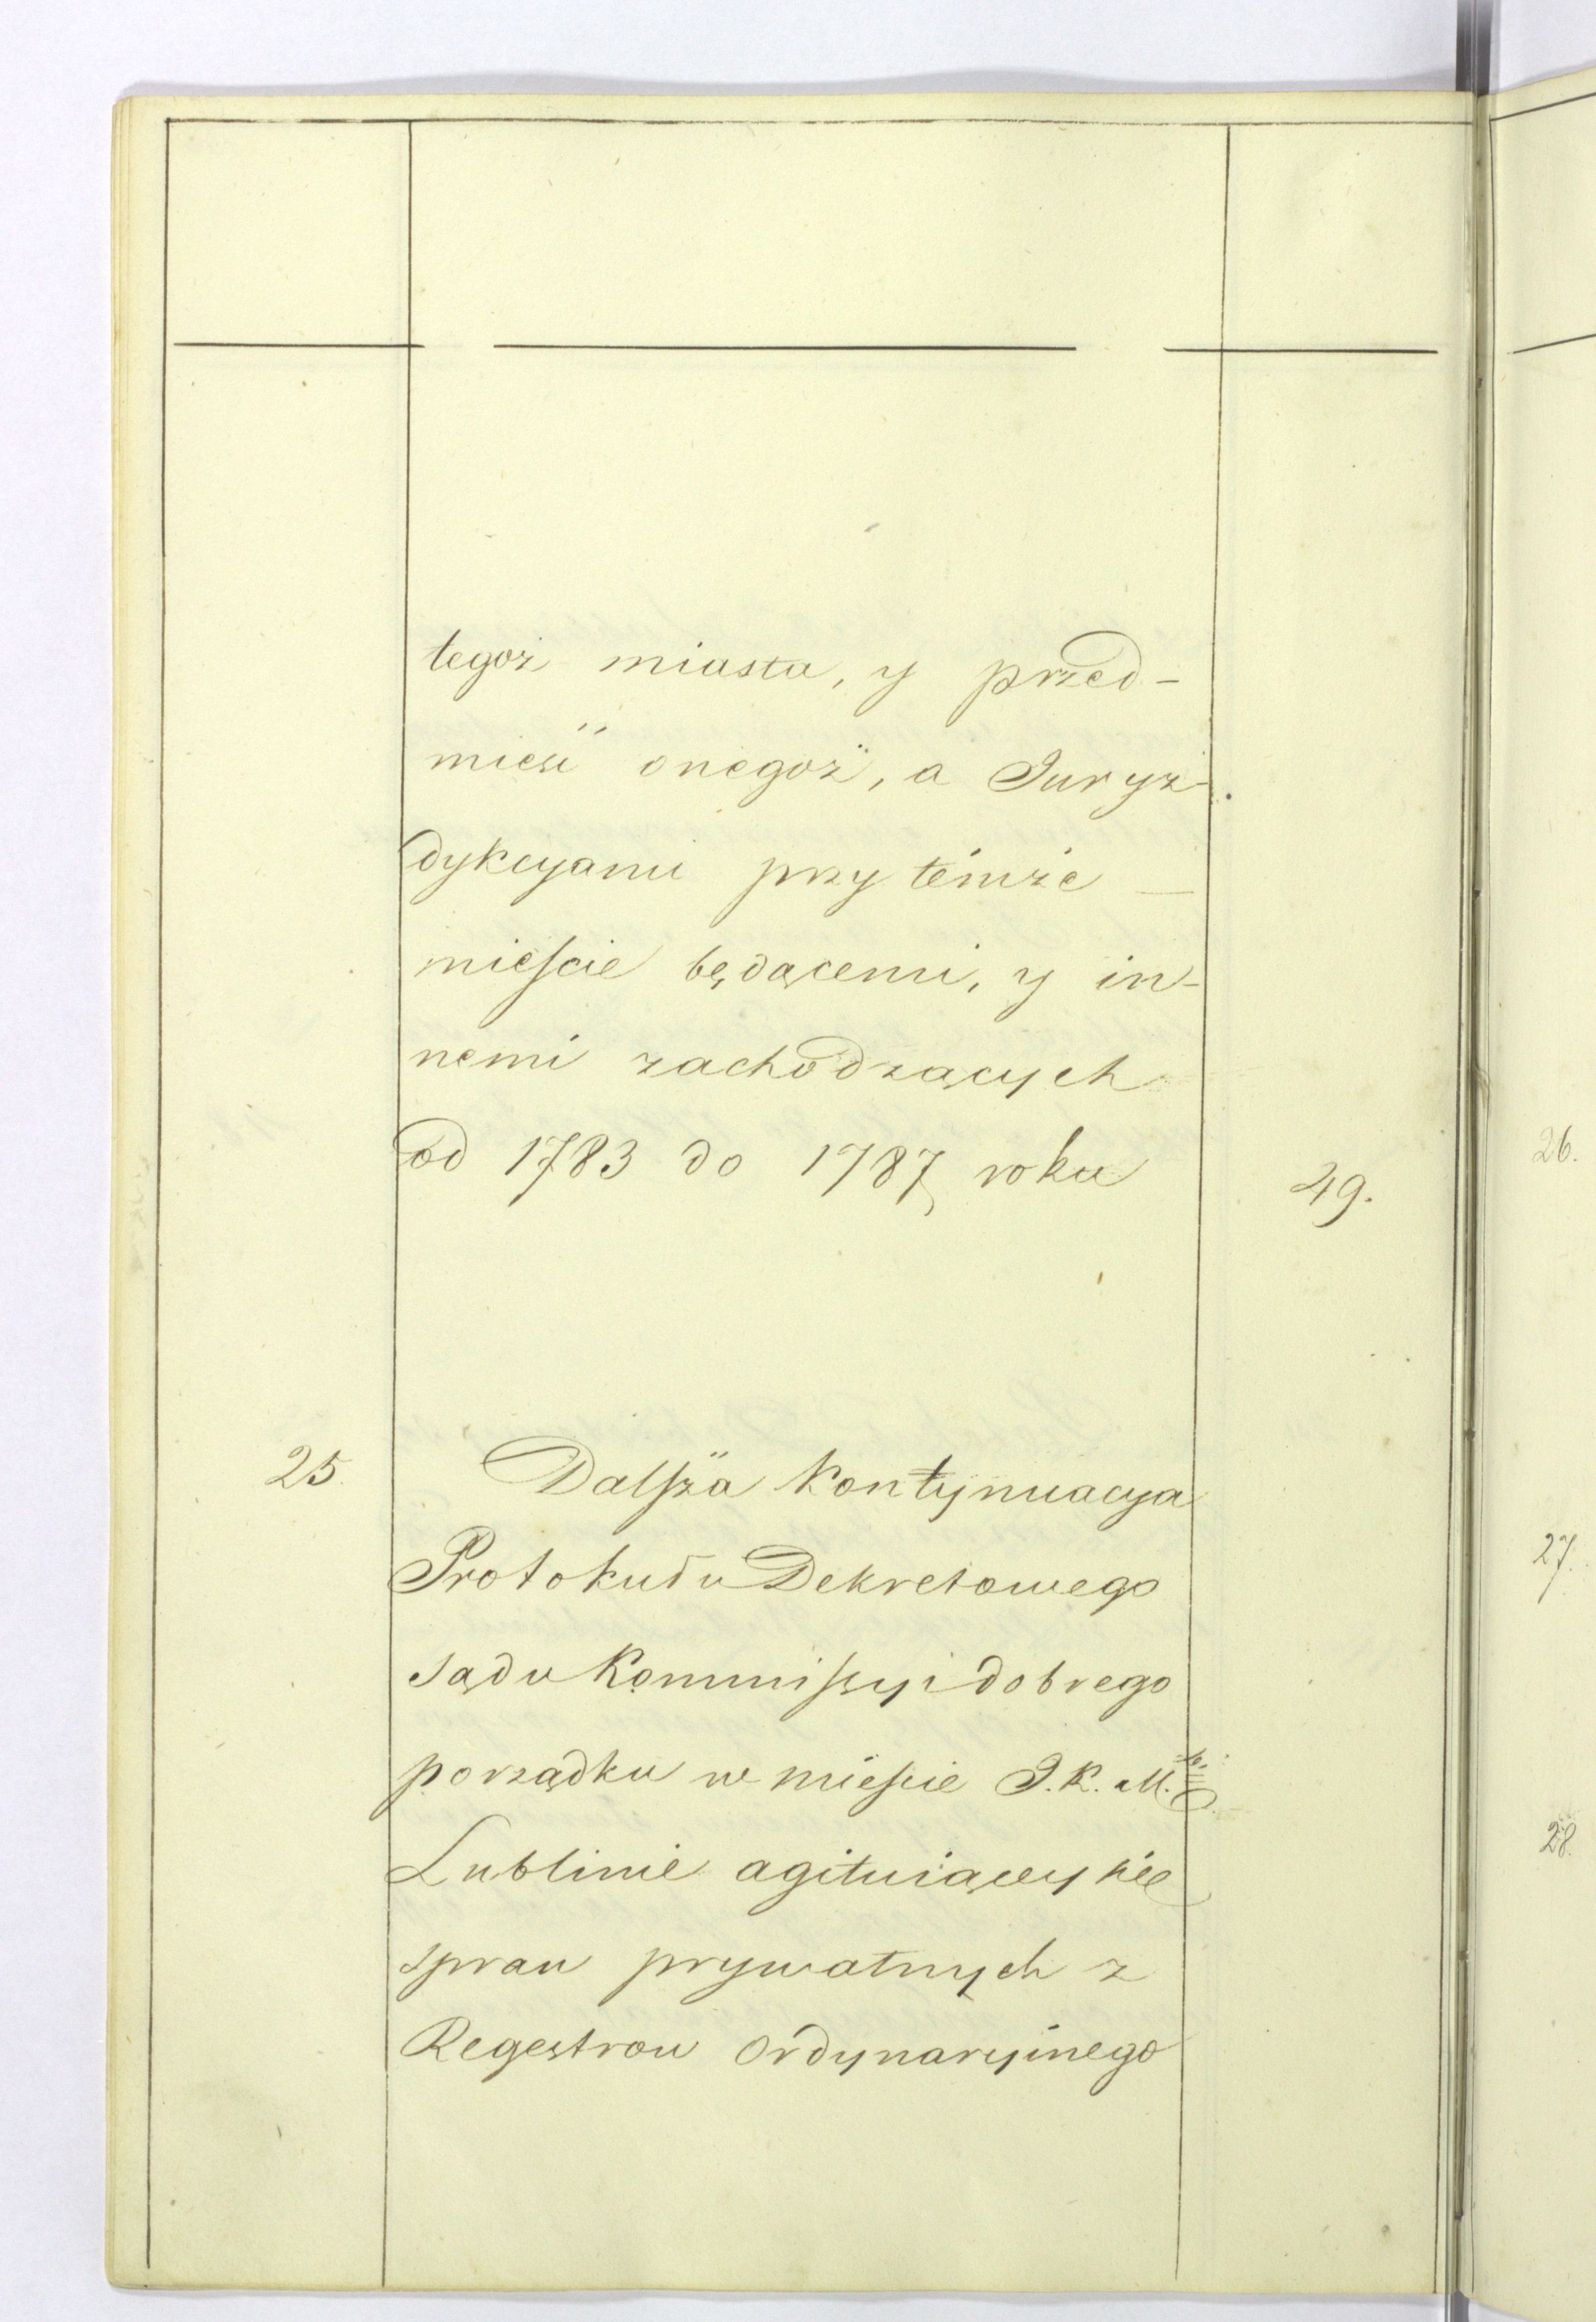 tegoż miasta, y przed-
mieść onegoż, a Juryz-
dykcyami przy témże
mieſcie będącemi, y in-
nemi zachodzących
od 1783 do 1787 roku
49.
25.
Dalſza Kontynuacya
Protokułu Dekretowego
sądu Kommiſsyi dobrego
porządku w mieſcie J. K. M.
Lublinie agituiący się
spraw prywatnych z
Regestrow Ordynaryinego
26.
27.
28.